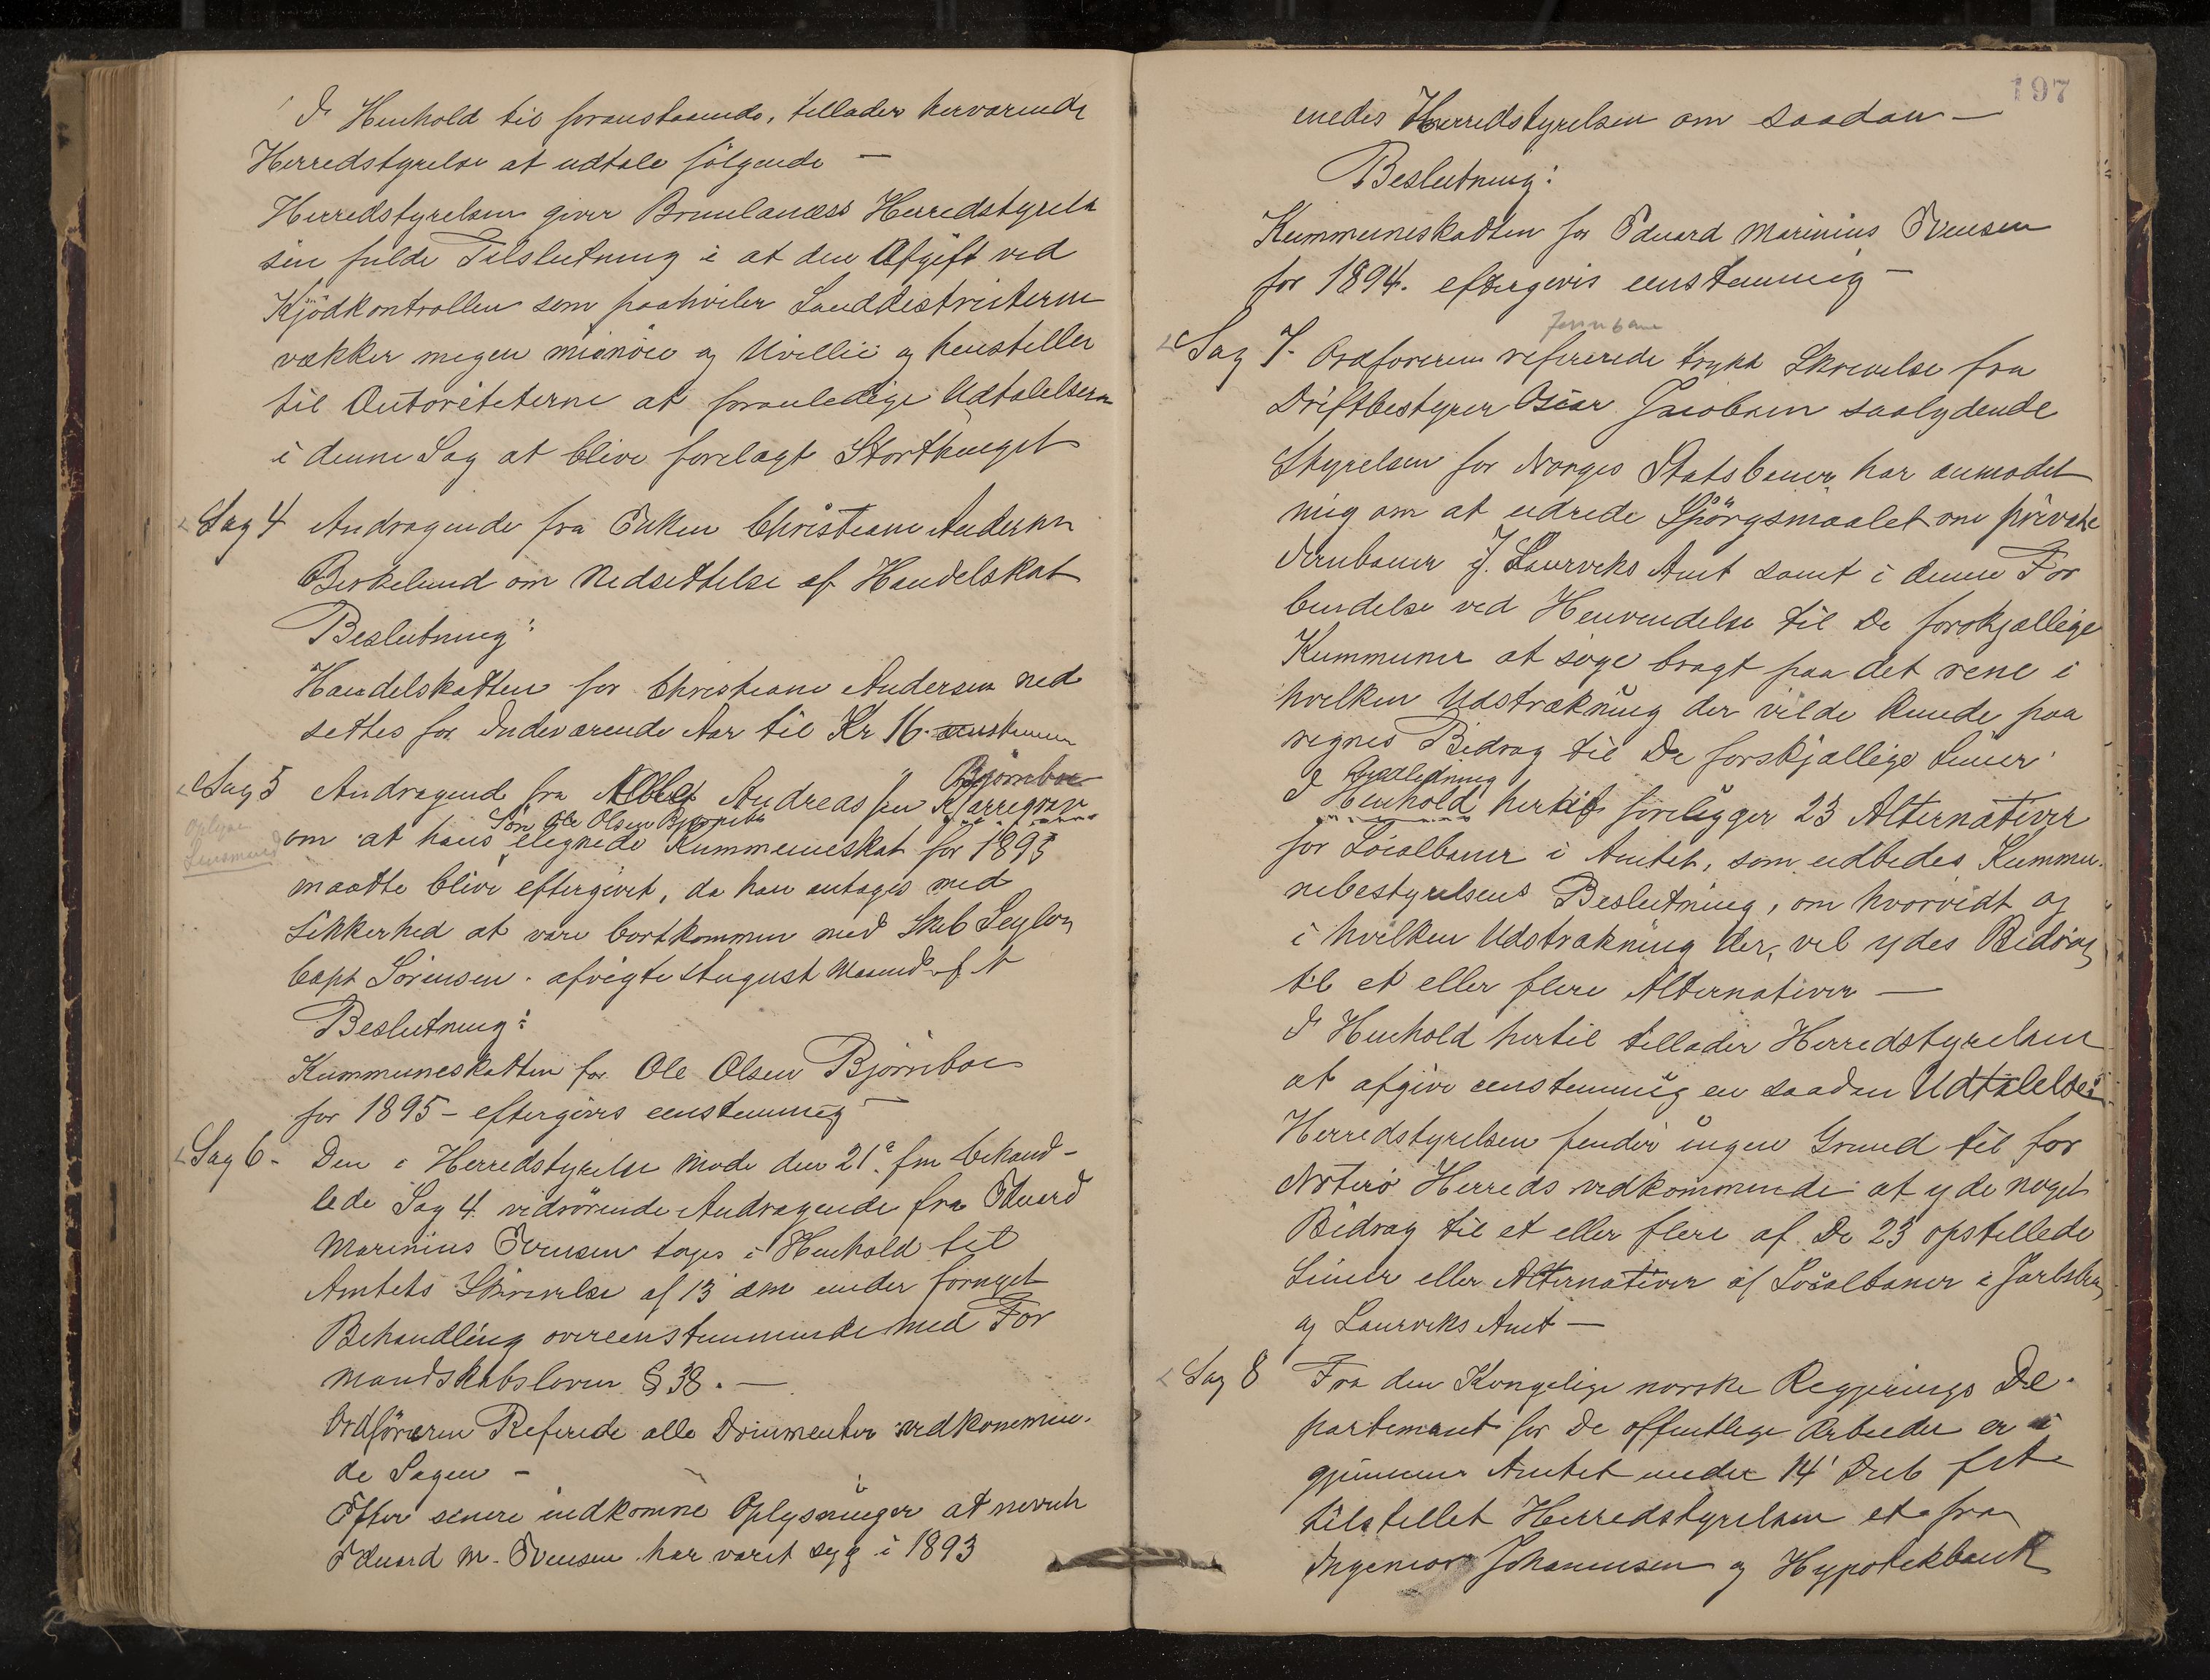 I Henhold til foranstaaende, tillader herværende
Herredstyrelse at udtale følgende —
Herredstyrelsen giver Brunlanæss Herredstyrelse
sin fulde Tilslutning i at den Afgift ved
Kjödkontrollen som paahviler Landdistricterne
vækker megen misnöie og Uvillie og henstiller
til Autoriteterne at foranledige Udtalelserne
i denne Sag at blive forelagt Storthinget
Sag 4 Andragende fra Enken Christiane Andersen
Birkelund om Nedsettelse af Handelskat
Beslutning:
Handelskatten for Christiane Andersen ned
settes for Indeværende Aar til Kr 16. eenstemm
Björnboe
Sag 5 Andragend fra Andreassen Narregrav
Oplyse
Søn Ole Olsen
Lensmand
om at hans elignede Kummeneskat for 1895
maatte blive eftergivet, da han antages med
Sikkerhed at være bortkommen med Skib Seylon
Capt Sörensen. afvigte August Maaned
Beslutning:
Kummuneskatten for Ole Olsen Björnboe
for 1895 - eftergives eenstemmig —
Sag 6 - Den i Herredstyrelse Møde den 21de fm behand-
lede Sag 4 vidrörende Andragende fra Eduard
Marinius Evensen tages i Henhold til
Amtets Skrivelse af 13 dm under fornyet
Behandling overeenstemmende med For
mandskabsloven § 38. —
Ordföreren Referede alle Documenter vedkommen-
de Sagen —
Efter senere indkomne Oplysninger at nevnte
Eduard M. Evensen har været syg i 1893
197
enedes Herredstyrelsen om saadan —
Beslutning:
Kummuneskatten for Eduard Marinius Evensen
for 1894. eftergives eenstemmig —
Jernbane
Sag 7 - Ordföreren refererede trykt Skrivelse fra
Driftbestyrer Oscar Jacobsen saalydende
Styrelsen for Norges Statsbaner har anmodet
mig om at udrede Spörgsmaalet om private
Jernbaner J. Laurviks Amt samt i denne For
bindelse ved Henvendelse til De forskjællige
Kummuner at söge bragt paa det rene i
hvilken Udstrækning der vilde kunde paa
regnes Bidrag til De forskjællige Linier
Anledning
I Henhold hertil foreligger 23 Alternativer
for Localbaner i Amtet, som udbedes Kummu-
nebestyrelsens Beslutning, om hvorvidt og
i hvilken Udstrækning der, vil ydes Bidrag
til et eller flere Alternativer —
I Henhold hertil tillader Herredstyrelsen
at afgive eenstemmig en saaden Udtalelse:
Herredstyrelsen finder ingen Grund til for
Nøterö Herreds vedkommende at yde noget
Bidrag til et eller flere af De 23 opstillede
Linier eller Alternativer af Localbaner i Jarlsberg
og Laurviks Amt —
Sag 8 Fra den Kongelige norske Regjerings De-
partement for De offentlige Arbeider er i
gjennem Amtet under 14' Deb
tilstellet Herredstyrelsen et fra
Ingeniør Johannsen og Hypotekbank